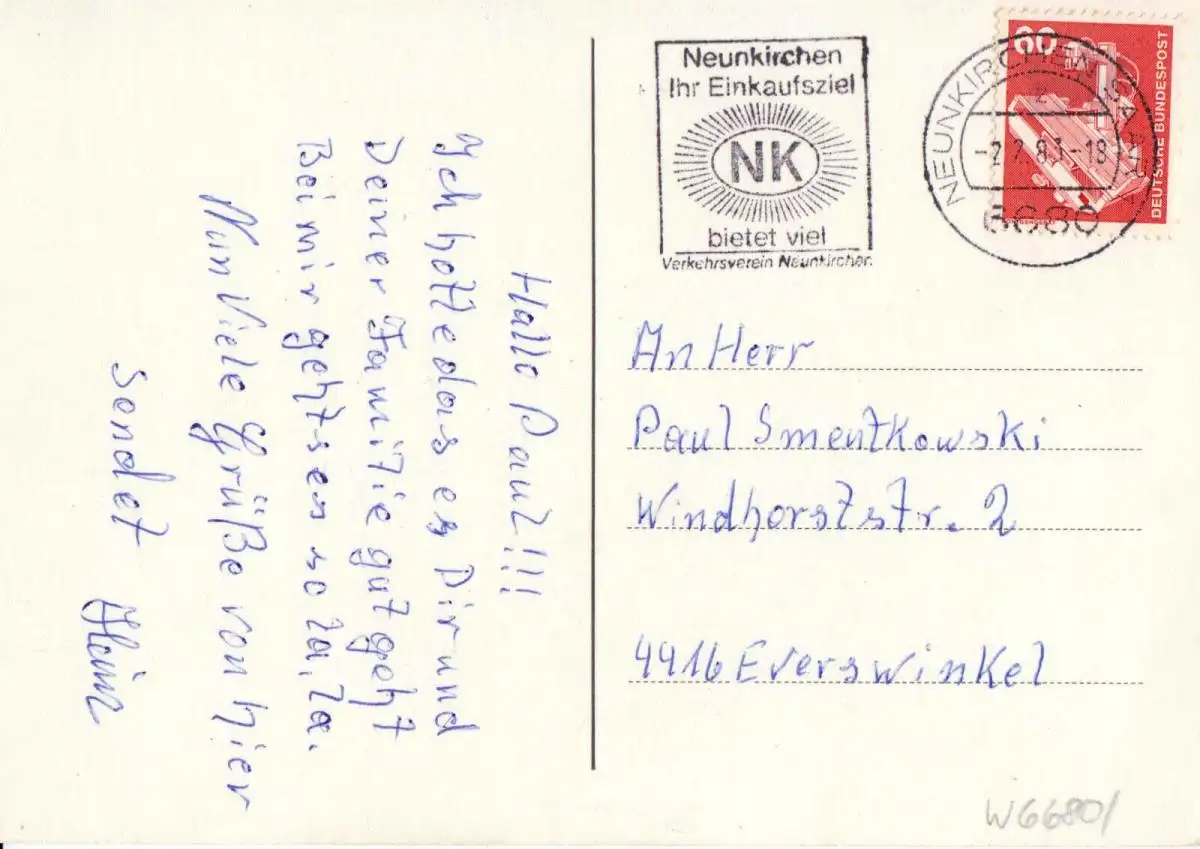 Hallo Paul!!!
Ich hoffe das es Dir und
Deiner Familie gut geht
Bei mir geht's so la, la.
Nun Viele Grüße von hier
sendet Heinz
Neunkirchen
Ihr Einkaufsziel
NK
bietet viel
Verkehrsverein Neunkirchen
60
DEUTSCHE BUNDESPOST
NEUNKIRCHEN, SAAR
83-18
6680
An Herr
Paul Smentkowski
Windhorststr. 2
4416 Everswinkel
W6680/